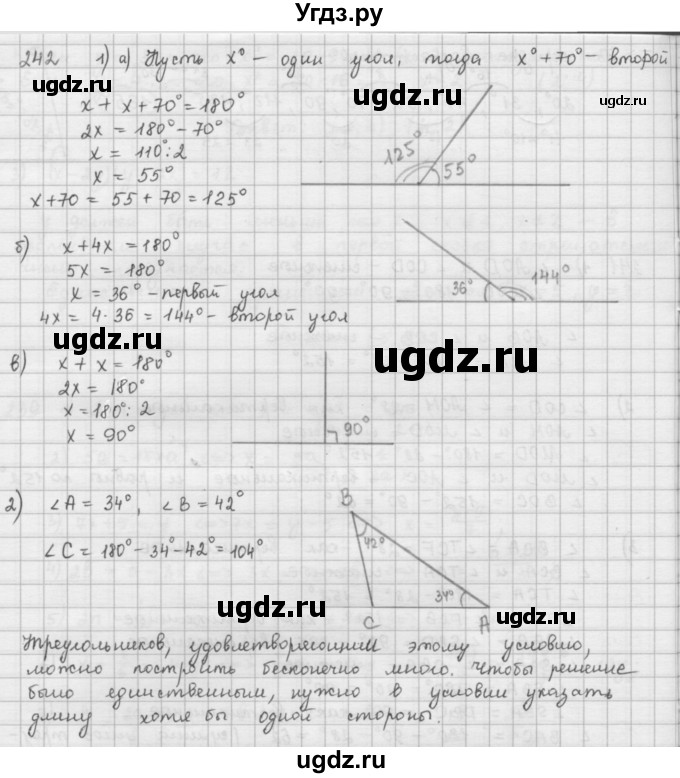 Угдз.ру
242 1) а) Пусть x° – один угол, тогда x° + 70° – второй
x + x + 70° = 180°
2x = 180° – 70°
x = 110° : 2
x = 55°
x + 70 = 55 + 70 = 125°
125°
55°
б) x + 4x = 180°
5x = 180°
x = 36° – первый угол
4x = 4 · 36 = 144° – второй угол
36°
144°
в) x + x = 180°
2x = 180°
x = 180° : 2
x = 90°
90°
2) ∠A = 34°, ∠B = 42°
∠C = 180° – 34° – 42° = 104°
B
42°
34°
C
A
Треугольников, удовлетворяющим этому условию,
можно построить бесконечно много. Чтобы решение
было единственным, нужно в условии указать
длину хотя бы одной стороны.
ugdz.ru
ugdz.ru
ugdz.ru
ugdz.ru
ugdz.ru
ugdz.ru
ugdz.ru
ugdz.ru
ugdz.ru
ugdz.ru
Угдз.ру